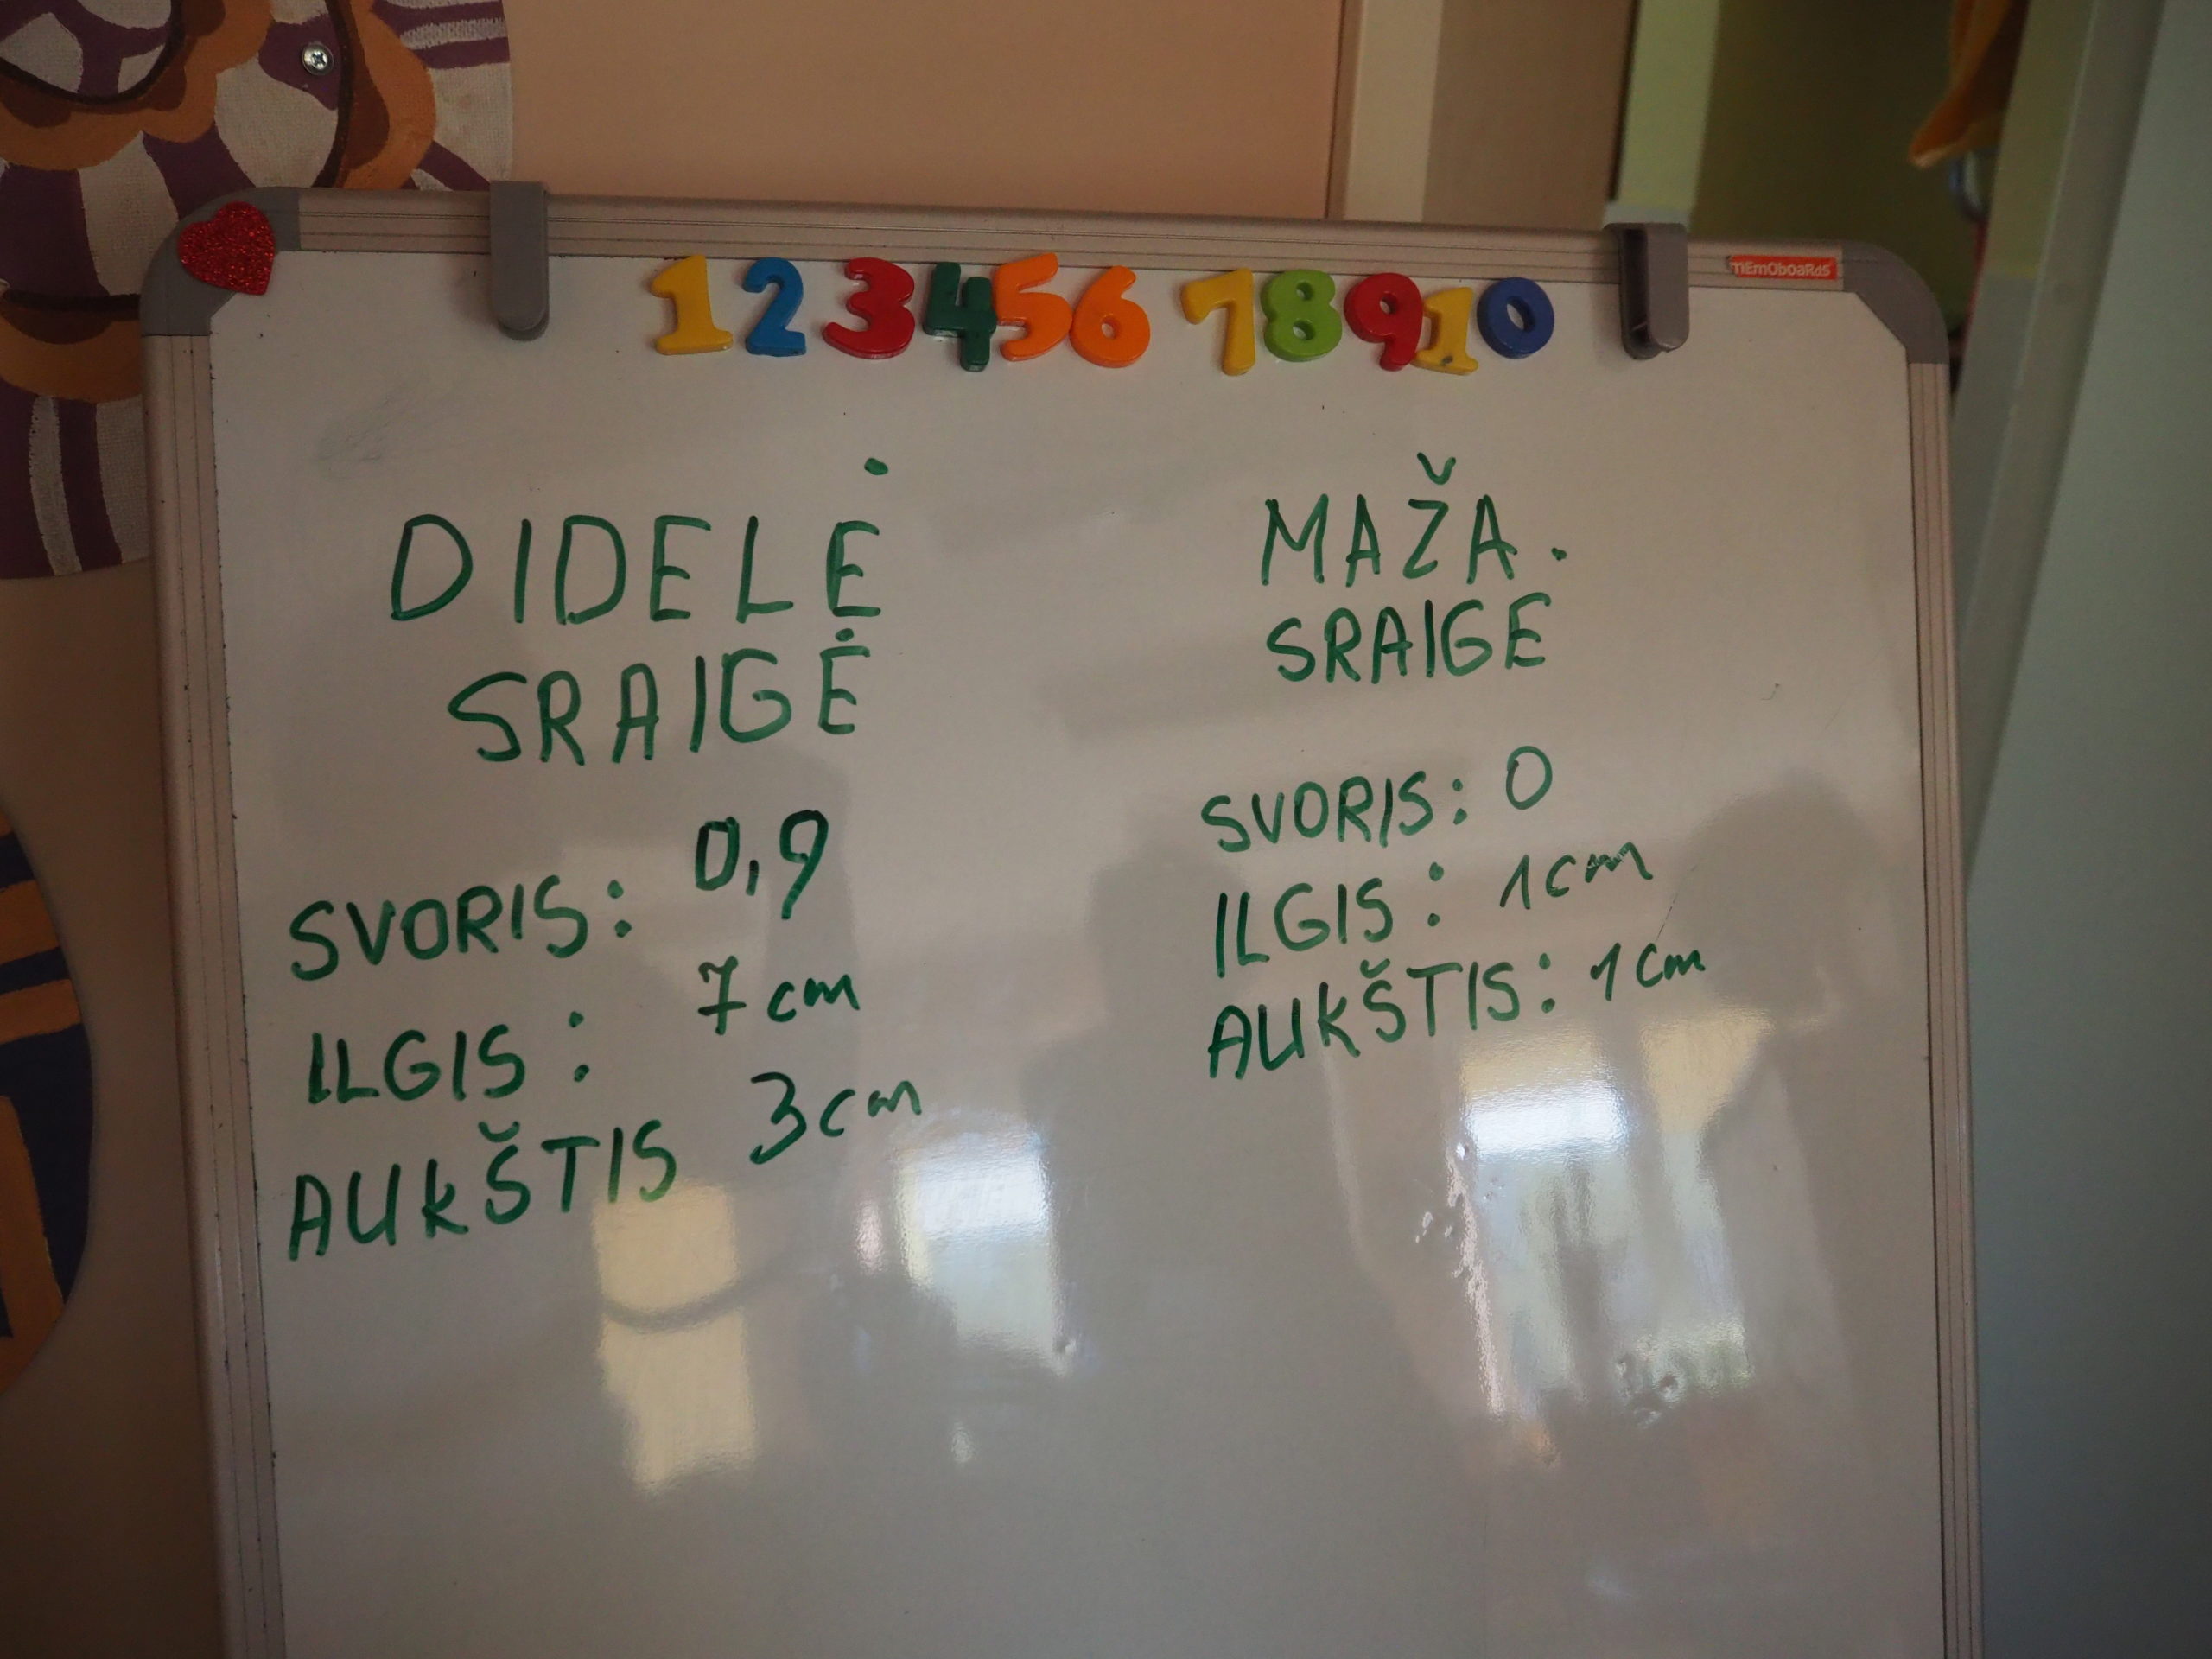 1 2 3 4 5 6 7 8 9 10
mEmoboaRds
DIDELĖ
SRAIGĖ
SVORIS: 0,9
ILGIS: 7 cm
AUKŠTIS 3 cm
MAŽA
SRAIGĖ
SVORIS: 0
ILGIS: 1 cm
AUKŠTIS: 1 cm